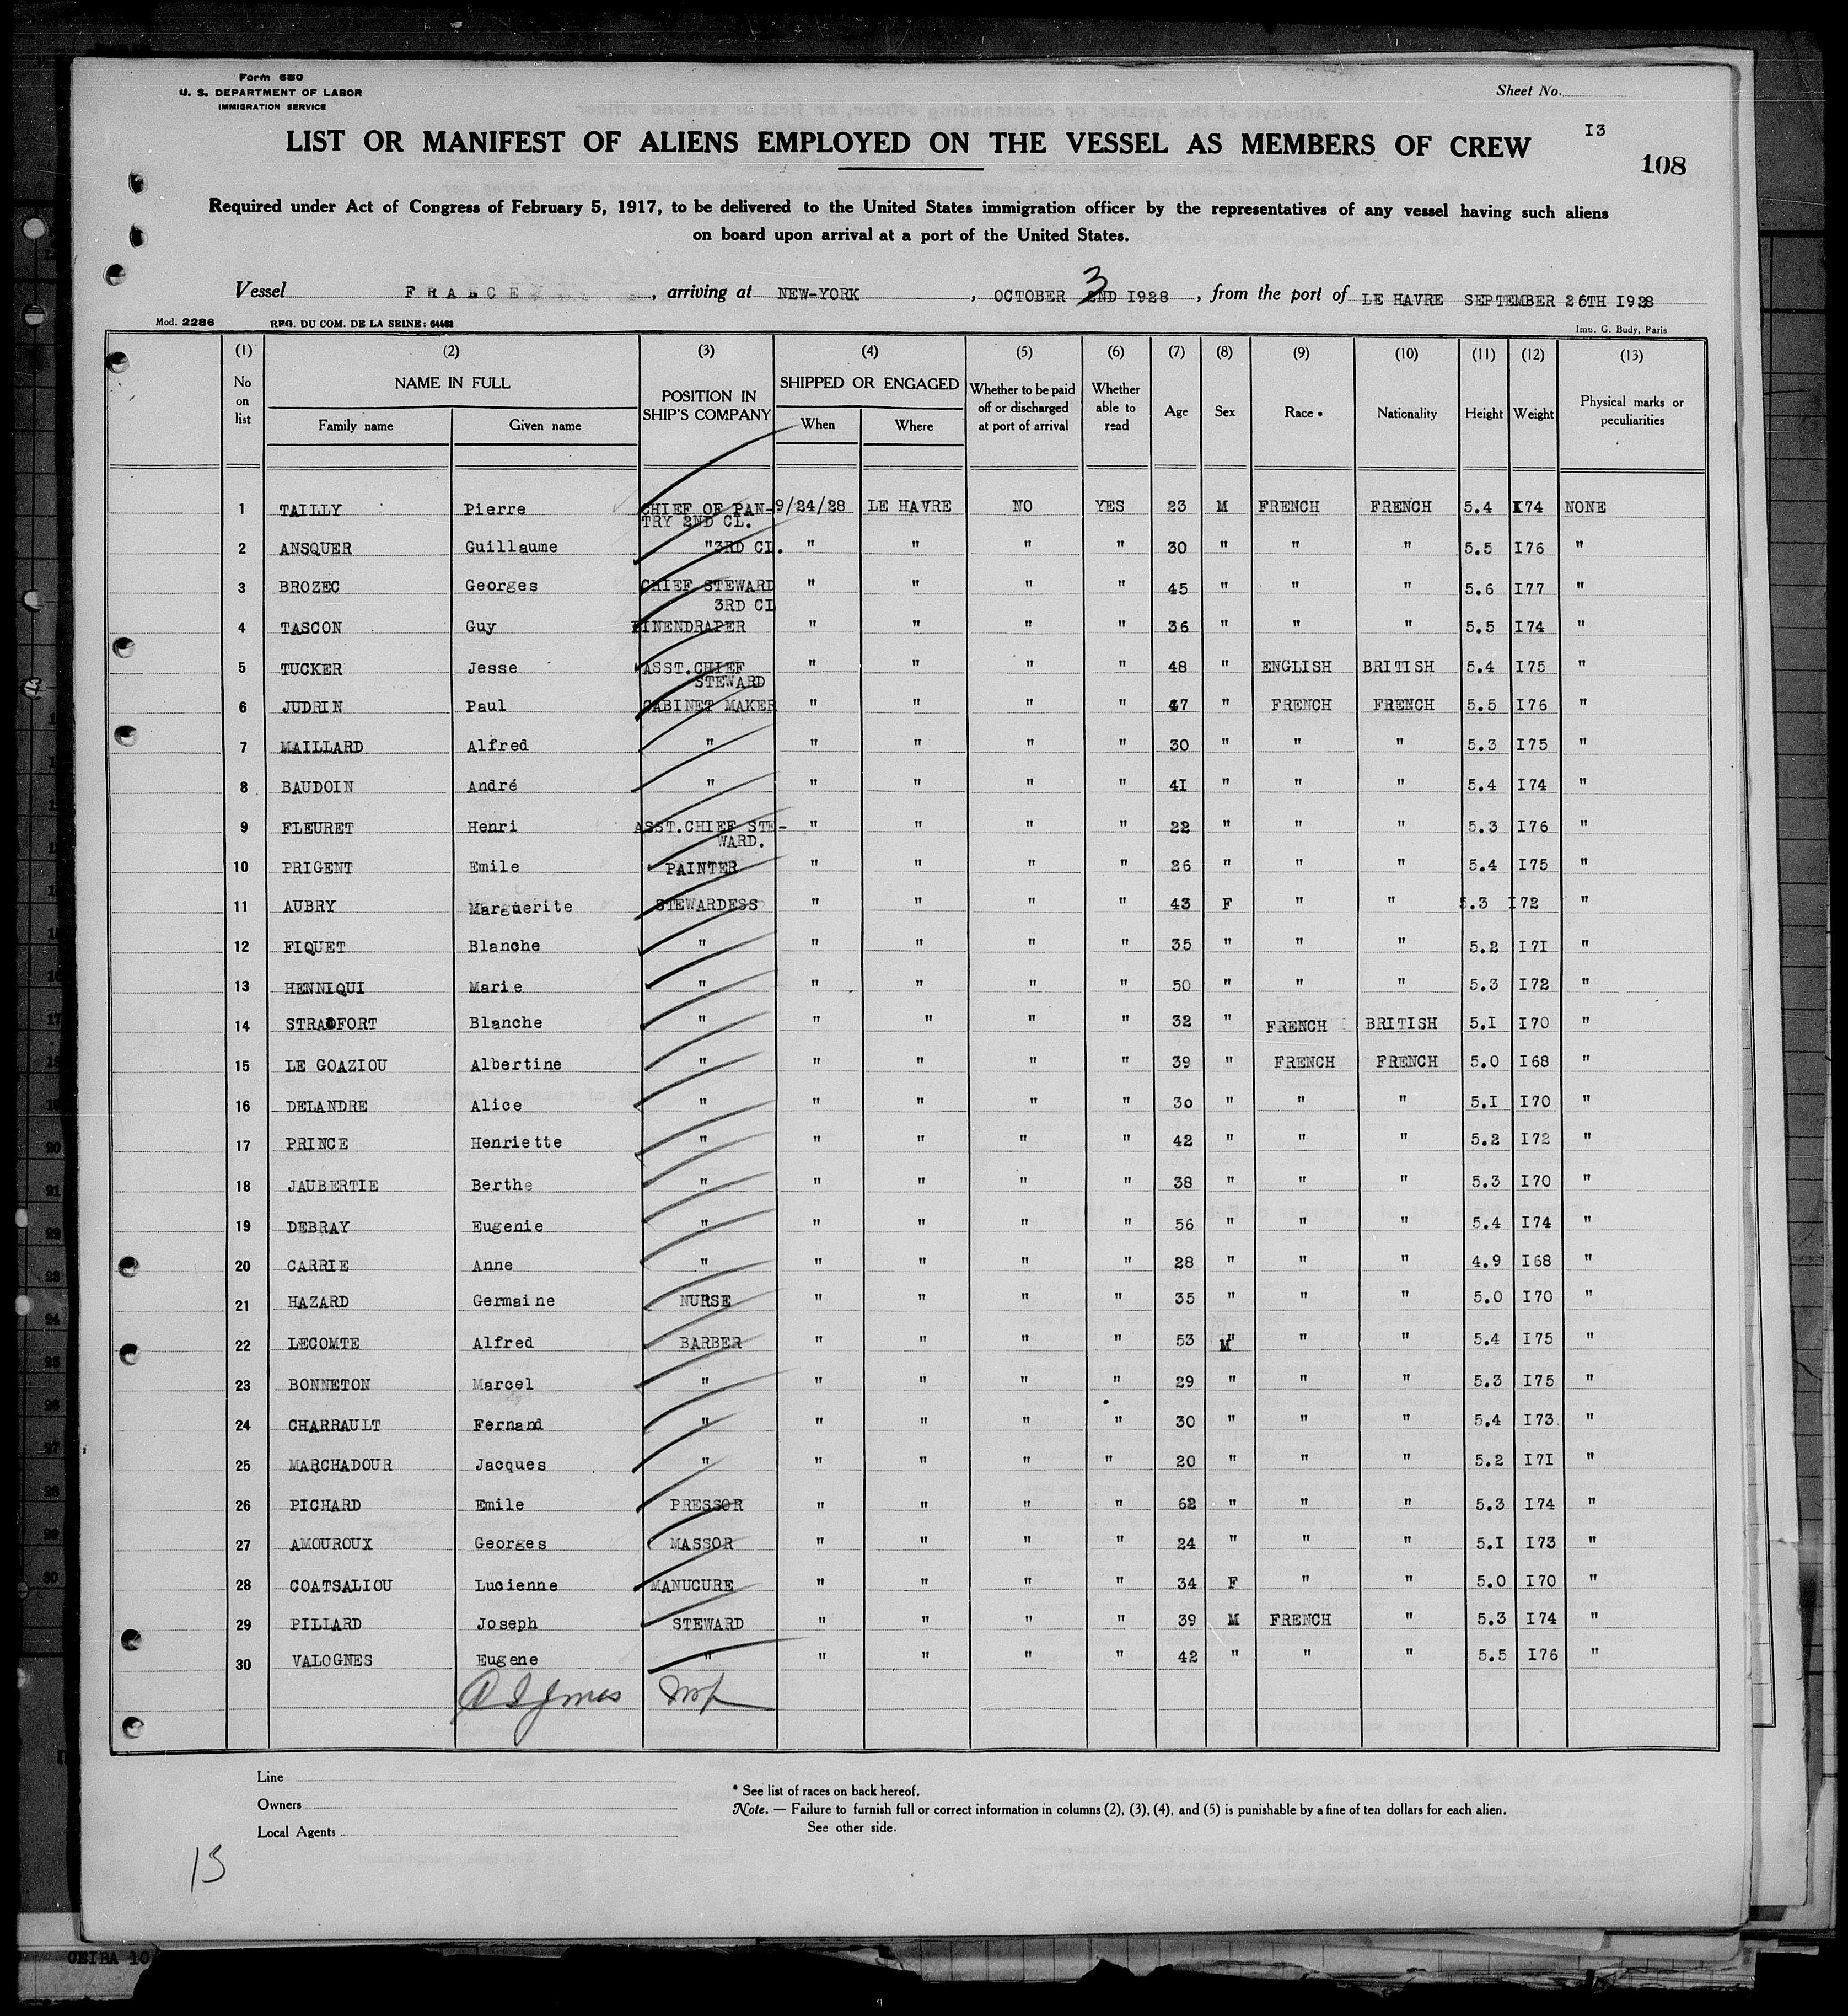 Form 680
U. S. DEPARTMENT OF LABOR
IMMIGRATION SERVICE
Sheet No.
LIST OR MANIFEST OF ALIENS EMPLOYED ON THE VESSEL AS MEMBERS OF CREW
I3
108
Required under Act of Congress of February 5, 1917, to be delivered to the United States immigration officer by the representatives of any vessel having such aliens
on board upon arrival at a port of the United States.
Vessel FRANCE, arriving at NEW-YORK, OCTOBER 3 2ND I928, from the port of LE HAVRE SEPTEMBER 26TH I928
Mod. 2286 REG. DU COM. DE LA SEINE: 64483 Imp. G. Budy, Paris
(1) (2) (3) (4) (5) (6) (7) (8) (9) (10) (11) (12) (13)
No on list NAME IN FULL Family name Given name POSITION IN SHIP'S COMPANY SHIPPED OR ENGAGED When Where Whether to be paid off or discharged at port of arrival Whether able to read Age Sex Race * Nationality Height Weight Physical marks or peculiarities
1 TAILLY Pierre CHIEF OF PAN- 9/24/28 LE HAVRE NO YES 23 M FRENCH FRENCH 5.4 I74 NONE
TRY 2ND CL.
2 ANSQUER Guillaume " 3RD CL. " " " " 30 " " " 5.5 I76 "
3 BROZEC Georges CHIEF STEWARD " " " " 45 " " " 5.6 I77 "
3RD CL
4 TASCON Guy LINENDRAPER " " " " 36 " " " 5.5 I74 "
5 TUCKER Jesse ASST.CHIEF " " " " 48 " ENGLISH BRITISH 5.4 I75 "
STEWARD
6 JUDRIN Paul CABINET MAKER " " " " 47 " FRENCH FRENCH 5.5 I76 "
7 MAILLARD Alfred " " " " " 30 " " " 5.3 I75 "
8 BAUDOIN André " " " " " 4I " " " 5.4 I74 "
9 FLEURET Henri ASST.CHIEF STE- " " " " 22 " " " 5.3 I76 "
WARD.
10 PRIGENT Emile PAINTER " " " " 26 " " " 5.4 I75 "
11 AUBRY Marguerite STEWARDESS " " " " 43 F " " 5.3 I72 "
12 FIQUET Blanche " " " " " 35 " " " 5.2 I7I "
13 HENNIQUI Marie " " " " " 50 " " " 5.3 I72 "
14 STRADFORT Blanche " " " " " 32 " FRENCH BRITISH 5.I I70 "
15 LE GOAZIOU Albertine " " " " " 39 " FRENCH FRENCH 5.0 I68 "
16 DELANDRE Alice " " " " " 30 " " " 5.I I70 "
17 PRINCE Henriette " " " " " 42 " " " 5.2 I72 "
18 JAUBERTIE Berthe " " " " " 38 " " " 5.3 I70 "
19 DEBRAY Eugenie " " " " " 56 " " " 5.4 I74 "
20 CARRIE Anne " " " " " 28 " " " 4.9 I68 "
21 HAZARD Germaine NURSE " " " " 35 " " " 5.0 I70 "
22 LECOMTE Alfred BARBER " " " " 53 M " " 5.4 I75 "
23 BONNETON Marcel " " " " " 29 " " " 5.3 I75 "
24 CHARRAULT Fernand " " " " " 30 " " " 5.4 I73 "
25 MARCHADOUR Jacques " " " " " 20 " " " 5.2 I7I "
26 PICHARD Emile PRESSOR " " " " 62 " " " 5.3 I74 "
27 AMOUROUX Georges MASSOR " " " " 24 " " " 5.I I73 "
28 COATSALIOU Lucienne MANUCURE " " " " 34 F " " 5.0 I70 "
29 PILLARD Joseph STEWARD " " " " 39 M FRENCH " 5.3 I74 "
30 VALOGNES Eugene " " " " " 42 " " " 5.5 I76 "
Line
Owners
Local Agents
* See list of races on back hereof.
Note. — Failure to furnish full or correct information in columns (2), (3), (4), and (5) is punishable by a fine of ten dollars for each alien.
See other side.
13